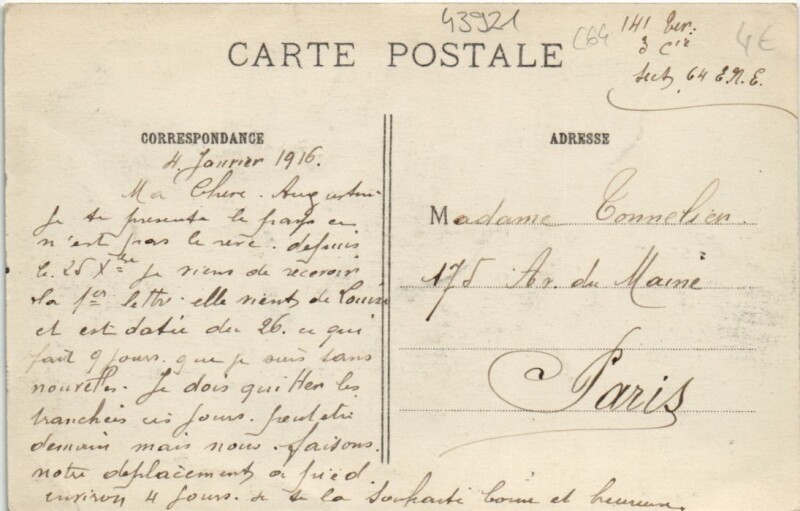 43921
C64
4€
141 Ter.
3 Cie
Sect 64 E.N.E.
CARTE POSTALE
CORRESPONDANCE
4. Janvier 1916.
Ma Chere. Augustine
Je te presente le pays ce
n'est pas le rêve. depuis
le. 25 Xbre je viens de recevoir
la 1ere lettre. elle vient de Louise
et est datée du 26. ce qui
fait 9 jours. que je suis sans
nouvelles. Je dois quitter les
tranchées ces jours. peut etre
demain mais nous. faisons.
notre deplacement a pied.
environ 4 jours. Je te la souhaite bonne et heureuse
ADRESSE
Madame Tonnelier.
175 Av. du Maine
Paris